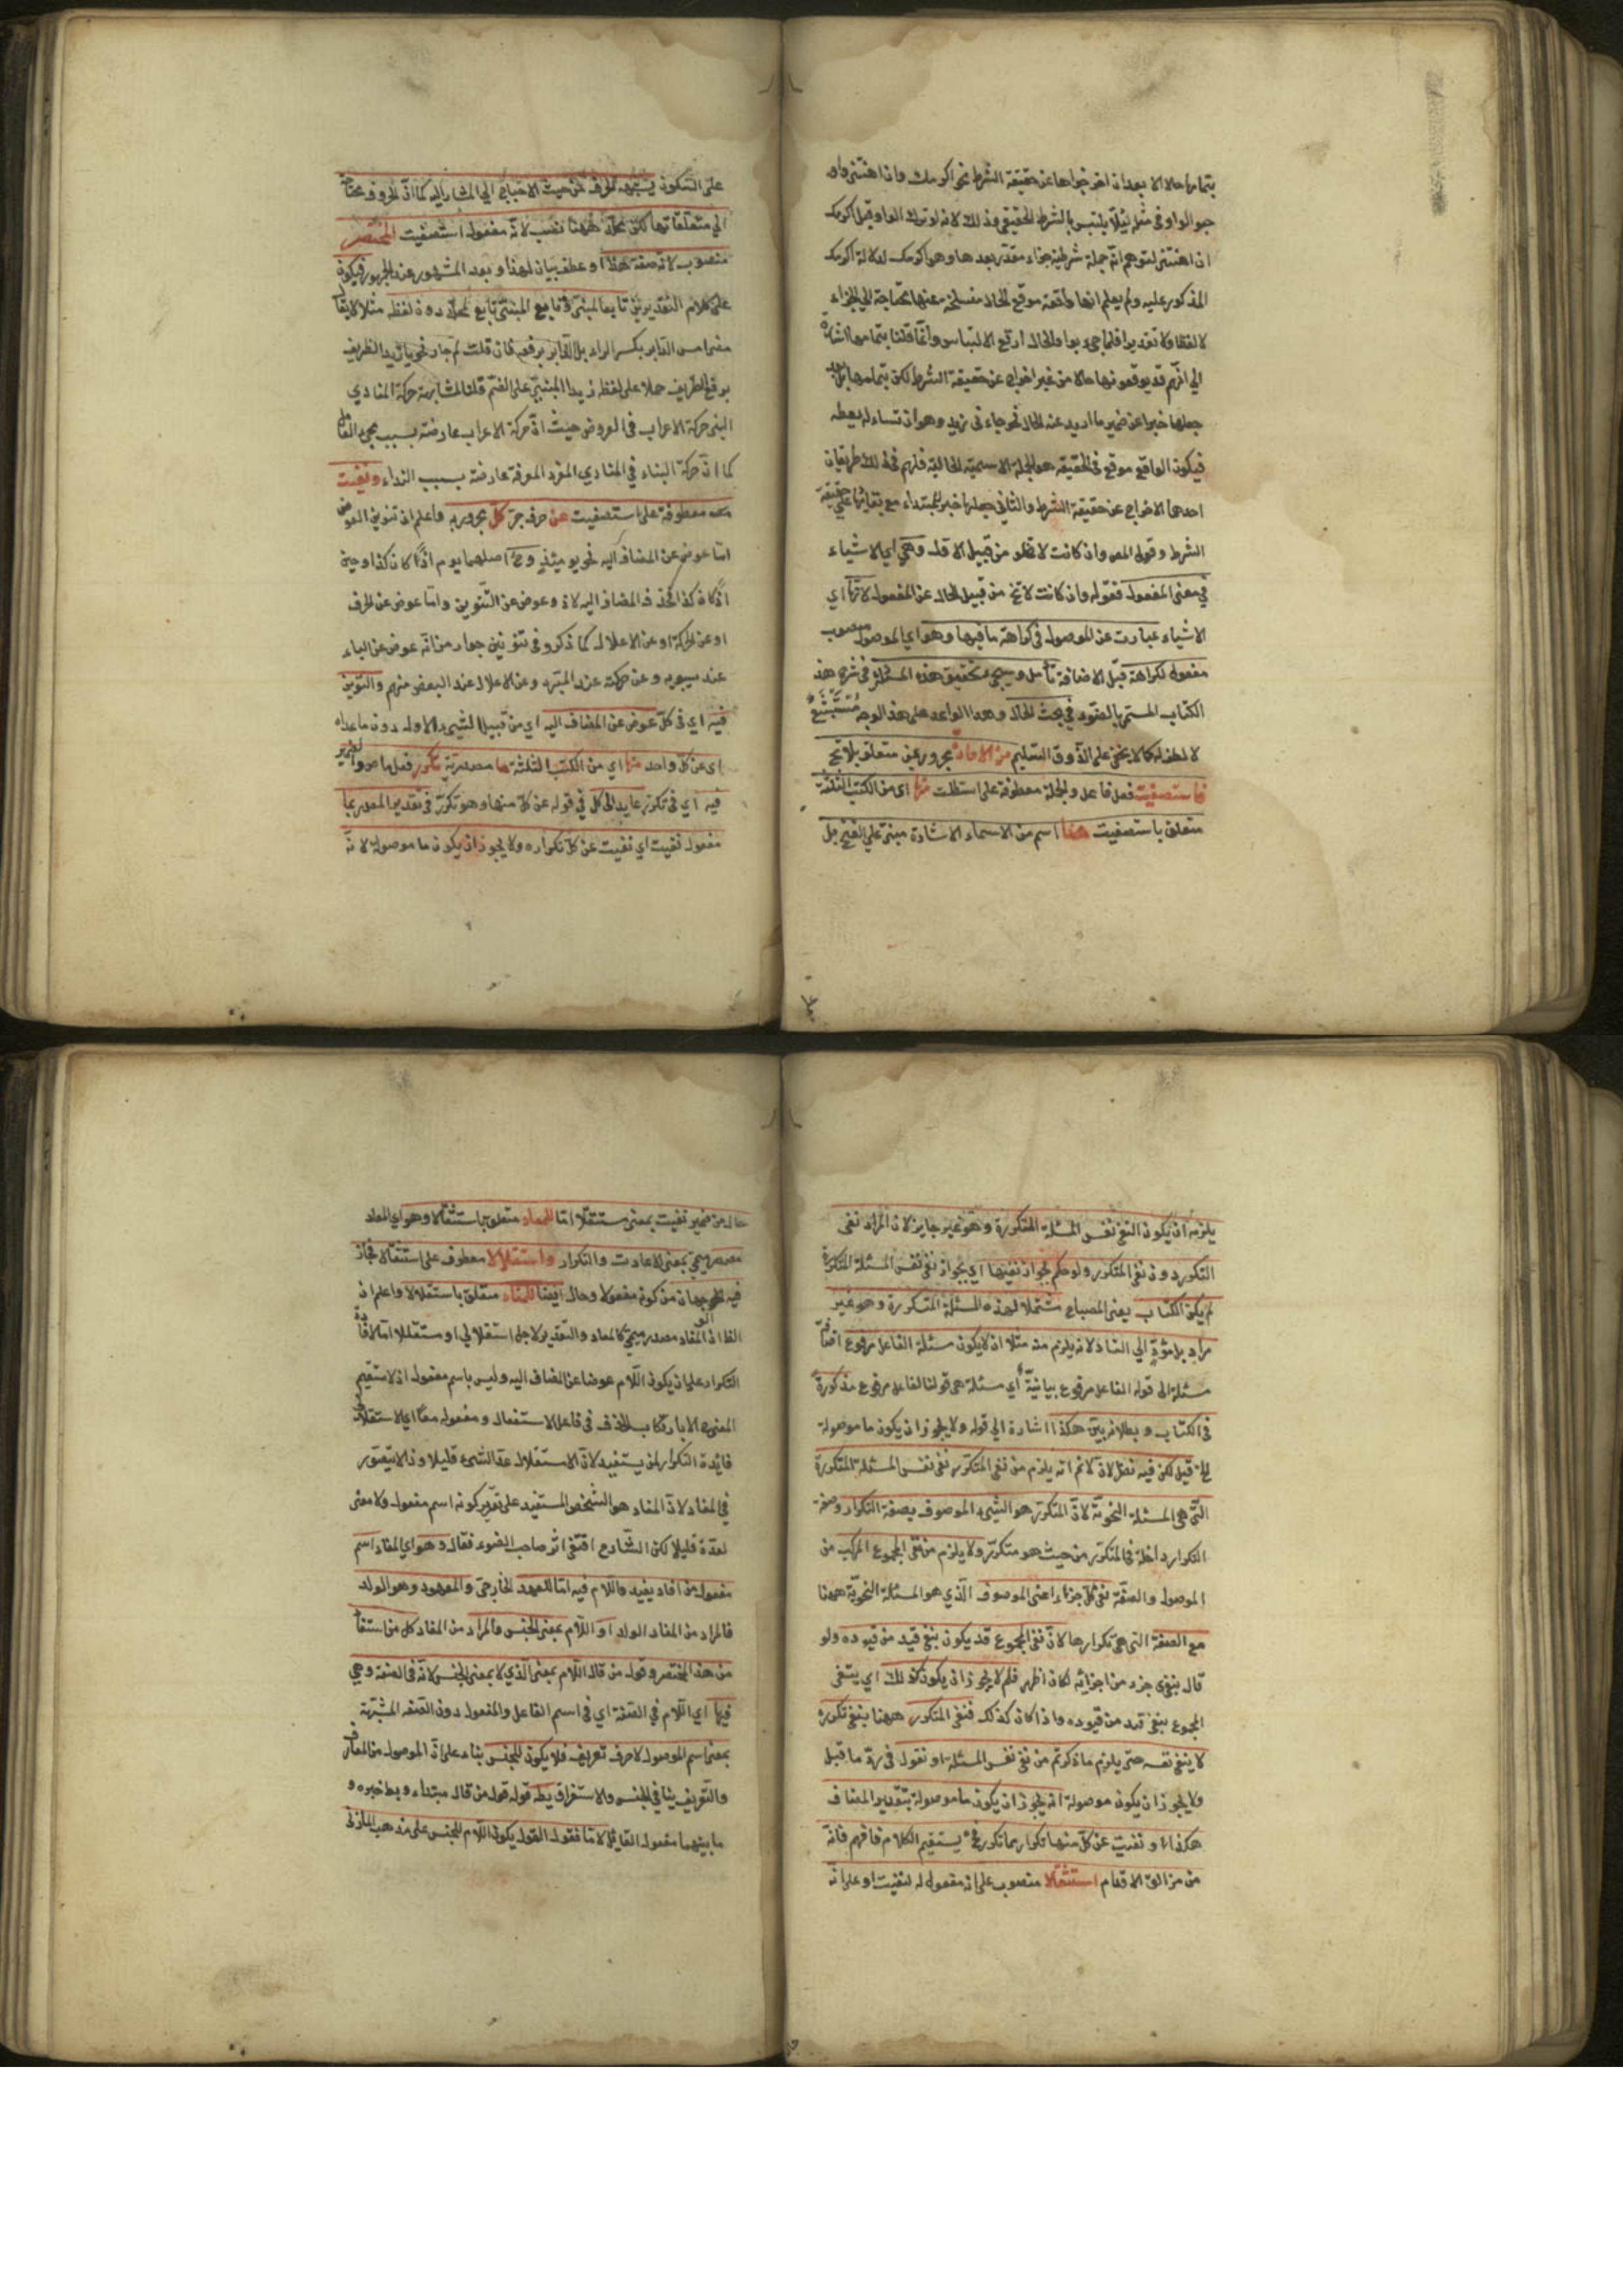 بتمامها حالا الا بعد ان اخرجوها عن حقيقة الشرط نحو اكرمك وان اهنتني واو
جوالواو في مثله لئلا يلتبس بالشرط الحقيقي وذلك لانه لو ترك الواو وقيل اكرمك
ان اهنتني لتوهم انه جملة شرطية جزاء مقدر بعدها وهو اكرمك لدلالة اكرمك
المذكور عليه ولم يعلم انها واقعة موقع الحال منسلخة معنها محتاجة الى الجزاء
لا لفظا ولا تقديرا فلما جيء بواو الحال ارتفع الالتباس وانما قلنا بتمامها اشارة
الى انهم قد يوقعونها حالا من غير اخراج عن حقيقة الشرط لكن بتمامها بل بعد
جعلها خبرا عن ضمير ما اريد عنه الحال نحو جاءني زيد وهو ان تساءله يعطه
فيكون الواقع موقع في الحقيقة هو الجملة الاسمية الحالية فلهم في ذلك طريقان
احدهما الاخراج عن حقيقة الشرط والثاني جعلها خبر المبتداء مع بقائها على حقيقة
الشرط وقوله المص وان كانت لا تخلو من قبيل الاقل وهي اي الاشياء
في معنى المفعول فقوله وان كانت لا تخ من قبيل الحال عن المفعول لانها اي
الاشياء عبارت عن الموصول في كراهة ما فيها وهو اي الموصول منصوب
مفعول لكراهة قبل الاضافة تأمل وسيجيء تحقيق هذه المسئلة في شرح هذ
الكتاب المستمر بالعقود في بحث الحال وهذا الواعد على هذ الوجه مستبشع
لا لطف له كما لا يخفى على الذوق السليم من الاعادة مجرور بمن متعلق بلا تخ
فاستصفيت فعل فاعل والجملة معطوفة على استظلت منها اي من الكتب الثلثة
متعلق باستصفيت هذا اسم من الاسماء الاشارة مبني على الفتح بل
على السكون يشبهه الحرف من حيث الاحتياج الى المشار اليه كما ان الحروف محتاجة
الى متعلقاتها لكن محله ههنا نصب لانه مفعول استصفيت المختصر
منصوب لانه صفة هذا او عطف بيان لهذا وبعد المشهور عند الجمهور فيكون
على كلام التقديرين تابعا لمبنى وتابع المبنى تابع محله دون لفظه مثلا لا يقال
مضى امس الدابر بكسر الراء بل الدابر برفعه فان قلت لم جاز نحو يا زيد الظريف
برفع الظريف حملا على لفظ زيد المبني على الضم قلنا لمشابهة حركة المنادي
المبنى حركة الاعراب في العروض حيث ان حركة الاعراب عارضة بسبب مجيء العامل
كما ان حركة البناء في المنادي المفرد المعرفة عارضة بسبب النداء ونفيت
معطوفة على استصفيت عن حرف جر كل مجرور به واعلم ان تنوين العوض
اما عوض عن المضاف اليه نحو يومئذ وح اصلهما يوم اذا كان كذا وحين
اذا كان كذا فحذف المضاف اليه لاذ وعوض عن التنوين واما عوض عن الحرف
او عن الحركة او عن الاعلال كما ذكروه في تنوين جوار من انه عوض عن الياء
عند سيبويه وعن حركته عند المبرد وعن الاعلال عند البعض منهم والتنوين
فيه اي في كل عوض عن المضاف اليه اي من قبيل الشيء الاول دون ما عداه
اي عن كل واحد منها اي من الكتب الثلثة ما مصدرية تكرر فعل ماض والضمير
فيه اي في تكرر عايد الى كل في قوله عن كل منها وهو تكرر في تقدير المصدر بما
مفعول نفيت اي نفيت عن كل تكراره ولا يجوز ان يكون ما موصوله لانه
يلزمه ان يكون النفي نفس المسئلة المتكررة وهو غير جايز لان المراد نفي
التكرر دون نفي المتكرر ولو حكم بجواز نفيها اي بجواز نفي نفس المسئلة المتكررة
لم يكن الكتاب يعنى المصباح مشتملا لهذه المسئلة المتكررة وهو غير
مراد بل مؤد الى الفساد لانه يلزم منه مثلا ان لا يكون مسئلة الفاعل مرفوع
مسئلة الى قوله الفاعل مرفوع بيانية اي مسئلة هي قولنا الفاعل مرفوع مذكورة
في الكتاب وبطلانه بين هكذا اشارة الى قوله ولا يجوز ان يكون ما موصولة
قيل لكن فيه نظر لان لا نم انه يلزم من نفي المتكرر نفي نفس المسئلة المتكررة
التي هي المسئلة النحوية لان المتكرر هو الشيء الموصوف بصفة التكرار وصفة
التكرار داخلة في المتكرر من حيث هو متكرر ولا يلزم من نفي المجموع المركب من
الموصول والصفة نفي كل جزء اعنى الموصوف الذي هو المسئلة النحوية ههنا
مع الصفة التي هي تكرارها لان نفي المجموع قد يكون بنفي قيد من قيوده ولو
قال بنفي جزء من اجزائه لكان اظهر فلم لا يجوز ان يكون كذلك اي ينتفي
المجموع بنفي قيد من قيوده واذا كان كذلك فنفي المتكرر ههنا بنفي تكرره
لا بنفي نفسه حتى يلزم ما ذكرتم من نفي نفس المسئلة او نقول في رد ما قيل
ولا يجوز ان يكون موصولة انه يجوز ان يكون ما موصولة بتقدير المضاف
هكذا ونفيت عن كل منها تكرار ما تكرر فح يستقيم الكلام فافهم فانه
من مزالق الاقدام استثقالا منصوب على انه مفعول له لنفيت او على انه
حال من ضمير نفيت بمعنى مستثقلا اما للمعاد متعلق باستثقالا وهو اي المعاد
مصدر ميمي بمعنى الاعادت والتكرار واستقلالا معطوف على استثقالا فجاز
فيه الوجهان من كونه مفعولا وحال ايضا للمفاد متعلق باستقلالا واعلم ان
الظ ان المفاد مصدر ميمي كالمعاد والتقدير لاجل استقلالي او مستقللا افادة
التكرار على ان يكون اللام عوضا عن المضاف اليه وليس باسم مفعول اذ لا يستقيم
المعنى الا بارتكاب الحذف في فاعل الاستفعال ومفعوله معا اي لاستقلال
فائدة التكرار لمن يستفيد لان الاستقلال عد الشيء قليلا وذا لا يتصور
في المفاد لان المفاد هو الشخص المستفيد على تقدير كونه اسم مفعول ولا معنى
لعده قليلا لكن الشارح اقتفى اثر صاحب الضوء فقال وهو اي المفاد اسم
مفعول من افاد يفيد واللام فيه اما للعهد الخارجي والمعهود وهو الولد
فالمراد من المفاد الولد او اللام بمعنى الجنس والمراد من المفاد كل من استفاد
من هذ المختصر وقول من قال اللام بمعنى الذي لا بمعنى الجنس لانه في الصفة وهي
فيها اي اللام في الصفة اي في اسم الفاعل والمفعول دون الصفة المشبهة
بمعنى اسم الموصول لا حرف تعريف فلا يكون للجنس بناء على ان الموصول من المعارف
والتعريف ينافي الجنس والاستغراق بط قوله قول من قال مبتداء وبط خبره و
ما بينهما مفعول القائل لانا نقول القول بكون اللام للجنس على مذهب المازني